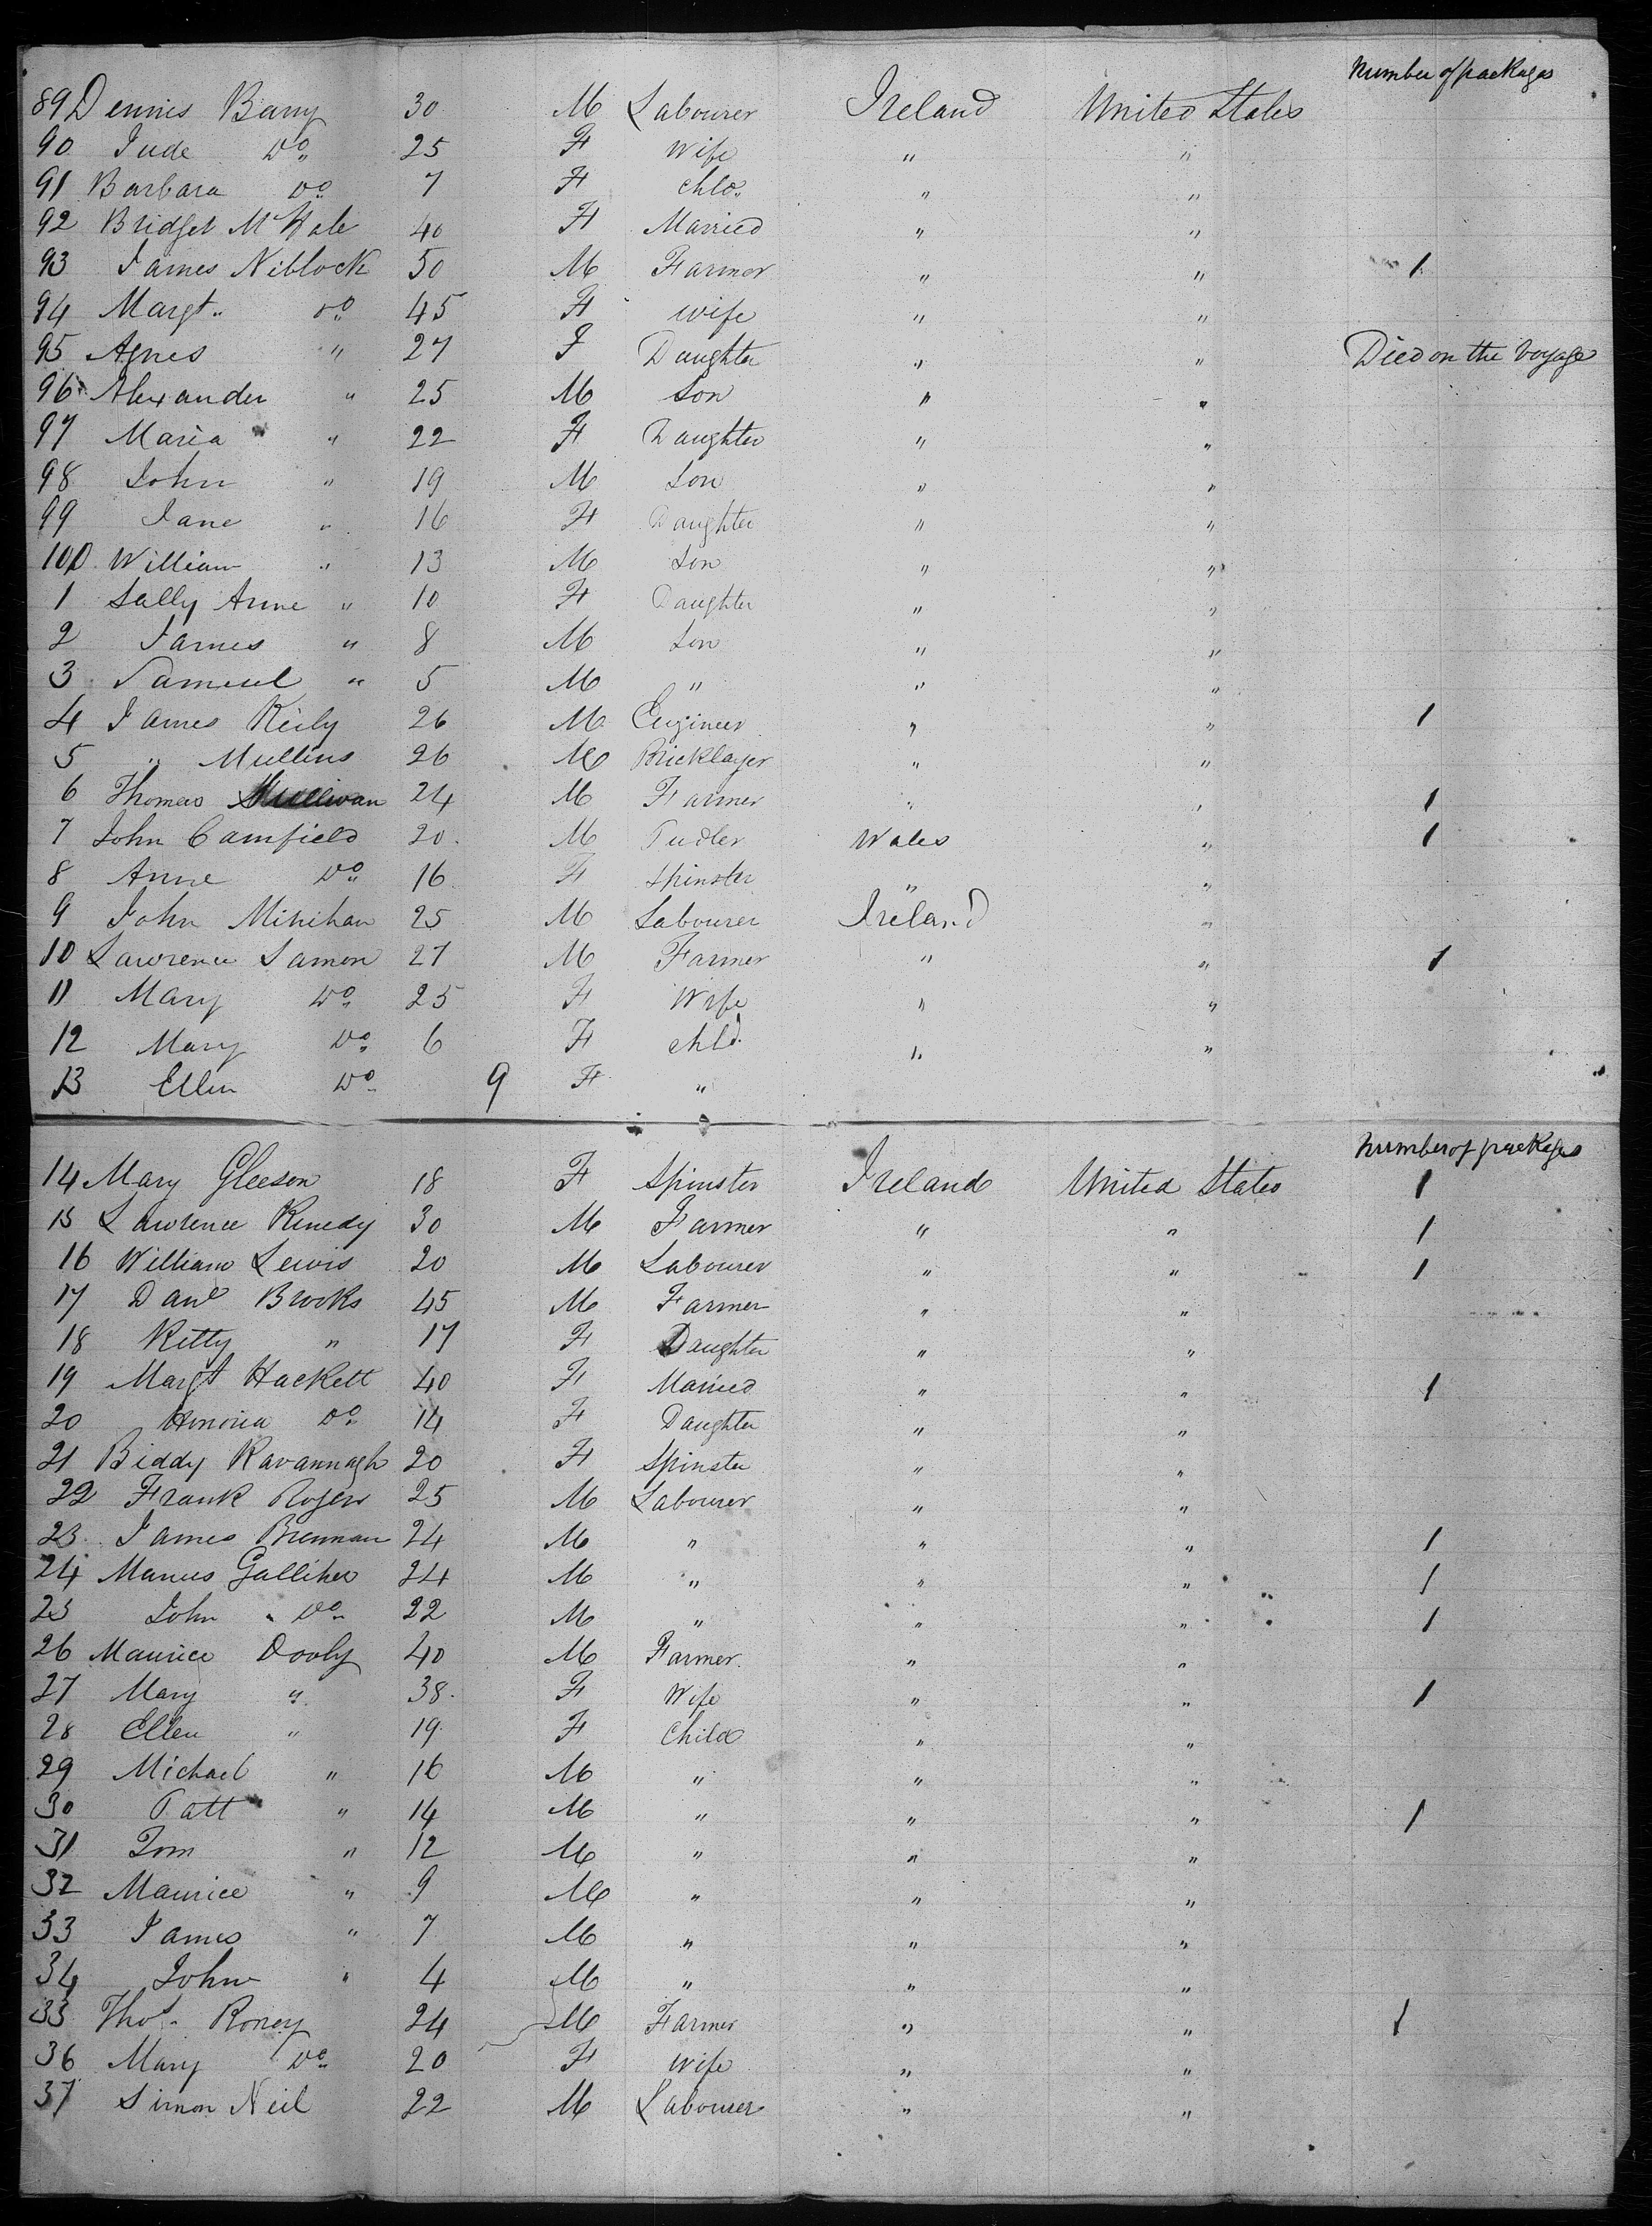 Number of packages
89 Dennis Barry 30 M Labourer Ireland United States
90 Jude Do 25 F Wife " "
91 Barbara Do 7 F Chld " "
92 Bridget McHale 40 F Married " "
93 James Niblock 50 M Farmer " " 1
94 Margt. do 45 F Wife " "
95 Agnes " 27 F Daughter " " Died on the Voyage
96 Alexander " 25 M Son " "
97 Maria " 22 F Daughter " "
98 John " 19 M Son " "
99 Jane " 16 F Daughter " "
100 William " 13 M Son " "
1 Sally Anne " 10 F Daughter " "
2 James " 8 M Son " "
3 Samuel " 5 M " " "
4 James Keily 26 M Engineer " " 1
5 " Mullins 26 M Bricklayer " "
6 Thomas Sullivan 24 M Farmer " " 1
7 John Camfield 20 M Pudler Wales " 1
8 Anne Do 16 F Spinster " "
9 John Minihan 25 M Labourer Ireland "
10 Lawrence Lamon 27 M Farmer " " 1
11 Mary Do 25 F Wife " "
12 Mary Do 6 F Chld " "
13 Ellen Do 9 F "
Number of packages
14 Mary Gleeson 18 F Spinster Ireland United States 1
15 Lawrence Kenedy 30 M Farmer " " 1
16 William Lewis 20 M Labourer " " 1
17 Danl Brooks 45 M Farmer " "
18 Kitty " 17 F Daughter " "
19 Margt Hackett 40 F Married " " 1
20 Honoria Do 14 F Daughter " "
21 Biddy Kavannagh 20 F Spinster " "
22 Frank Rogers 25 M Labourer " "
23 James Brennan 24 M " " " 1
24 Manus Galliher 24 M " " " 1
25 John Do 22 M " " " 1
26 Maurice Dooly 40 M Farmer " "
27 Mary " 38 F Wife " " 1
28 Ellen " 19 F Child " "
29 Michael " 16 M " " "
30 Patt " 14 M " " " 1
31 Tom " 12 M " " "
32 Maurice " 9 M " " "
33 James " 7 M " " "
34 John " 4 M " " "
35 Thos. Roney 24 M Farmer " " 1
36 Mary Do 20 F Wife " "
37 Simon Neil 22 M Labourer " "